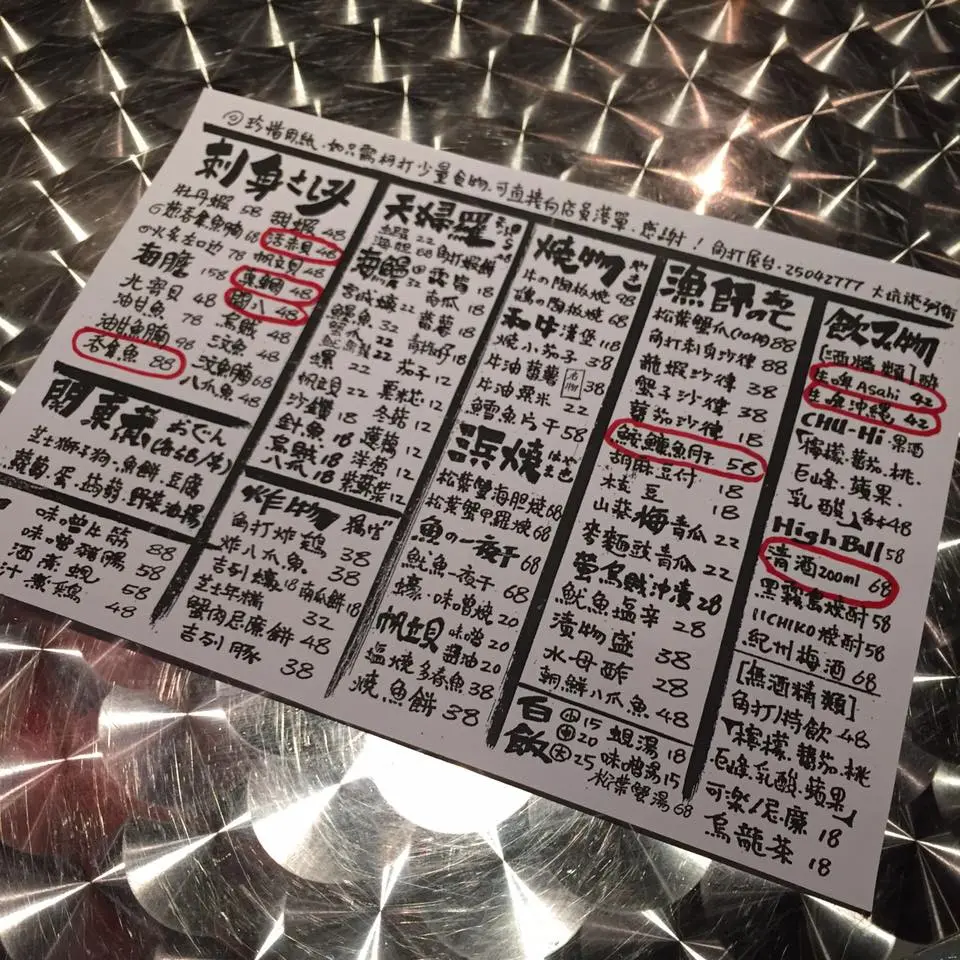 珍惜用紙．如只需柯打少量食物，可直接向店員落單．感謝！角打屋台．25042777
刺身さしみ
牡丹蝦 58
吞拿魚腩 68
火炙左口边 78
海膽 158
光瞖貝 48
油甘魚 78
油甘魚腩 98
吞拿魚 88
甜蝦 48
活赤貝 48
帆立貝 48
真鯛 48
間八 48
烏賊 48
鮫魚 48
鮫魚腩 68
八爪魚 48
関東煮 おでん
芝士獅子狗．魚餅．豆腐
蘿蔔．蛋．蒟蒻．野菜油揚
味噌牛筋 88
味噌豬腸 58
酒煮蜆 58
汁煮鷄 48
天婦羅
蝦 22
海膽 68
海鰻
宮城蠔 22
鱚魚 32
蟹爪 22
螺 22
帆立貝 22
沙鑽 18
針魚 18
烏賊 18
八爪 18
角打蝦餅
雲呑 18
南瓜 18
蕃薯 18
青椒仔 18
茄子 12
粟米 12
冬菇 12
蓮藕 12
洋葱 12
紫蘇葉 12
炸物 揚げ
角打炸鷄 38
炸八爪魚 38
吉列蠔 18 南瓜餅 18
芝士年糕 32
蟹肉忌廉餅 48
吉列豚 38
燒物 やき
牛の陶板燒 98
鷄の陶板燒 68
和牛漢堡 118
燒小茄子 38
牛油蕃薯 38
牛油粟米 22
鱈魚片干 58
浜燒 はまやき
松葉蟹海胆燒 68
松葉蟹甲羅燒 68
魚の一夜干 68
魷魚一夜干 68
蠔．味噌燒 20
帆立貝 味噌 20
醬油 20
塩燒多春魚 38
燒魚餅 38
漁師あて
松葉蟹爪(10件) 88
角打刺身沙律 88
龍蝦沙律 38
蟹子沙律 38
蕃茄沙律 18
鮟鱇魚肝 58
胡麻豆付 18
枝豆 18
山葵梅青瓜 22
麥麵豉青瓜 22
螢烏賊沖漬 28
魷魚塩辛 28
漬物盛 38
水母酢 28
朝鮮八爪魚 48
白飯
小 15
中 20
大 25
蜆湯 18
味噌湯 15
松葉蟹湯 68
飲み物
[酒精類]
生啤 Asahi 42
生啤 沖縄 42
CHU-Hi．果酒
「檸檬．蕃茄．桃．
巨峰．蘋果．
乳酸」各48
High Ball 58
清酒200ml 68
黒霧島焼酎 58
IICHIKO焼酎 58
紀州梅酒 68
[無酒精類]
角打特飲 48
「檸檬．蕃茄．桃
巨峰．乳酸．蘋果」
可楽/忌廉 18
烏龍茶 18